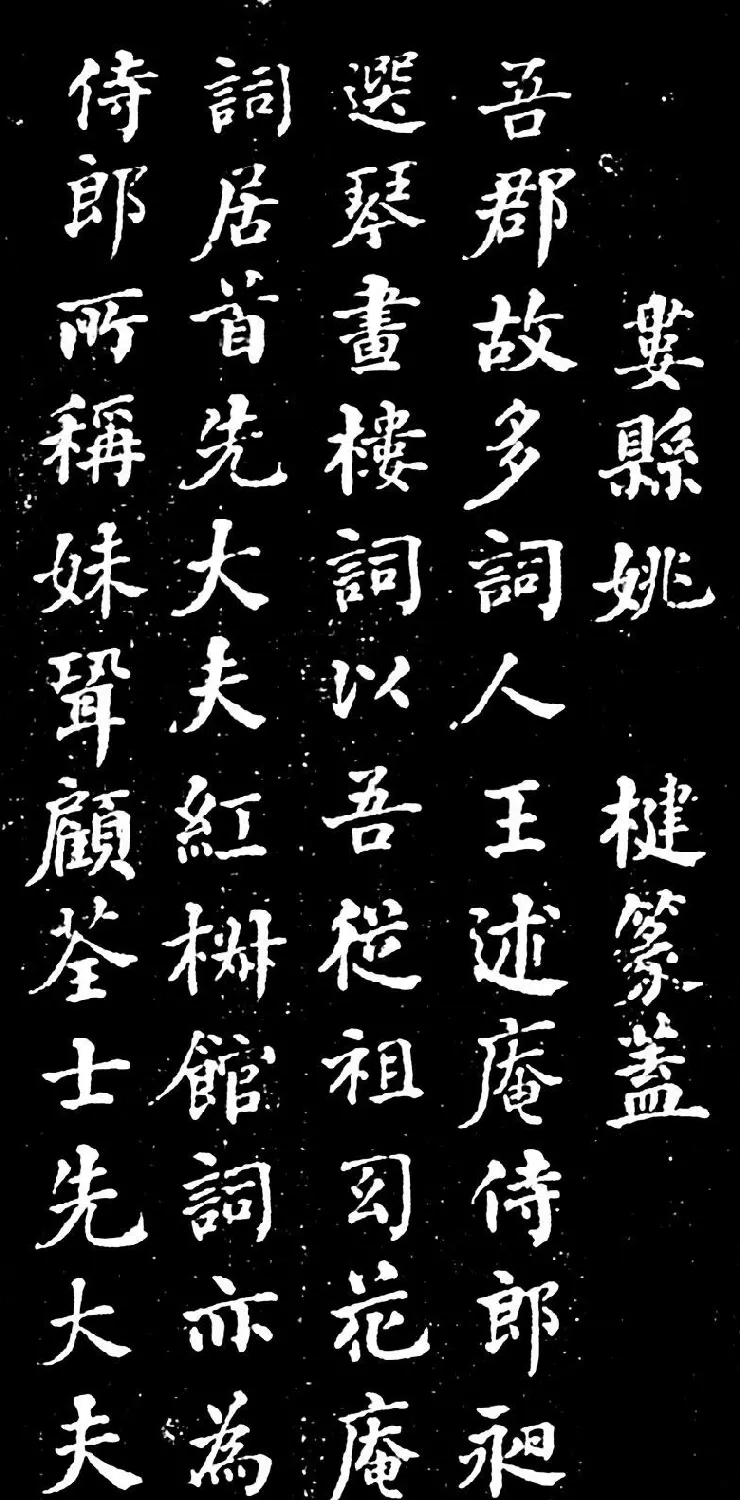 婁縣姚 楗篆蓋
吾郡故多詞人王述庵侍郎昶
選琴畫樓詞以吾從祖幻花庵
詞居首先大夫紅椒館詞亦為
侍郎所稱妹聟顧荃士先大夫